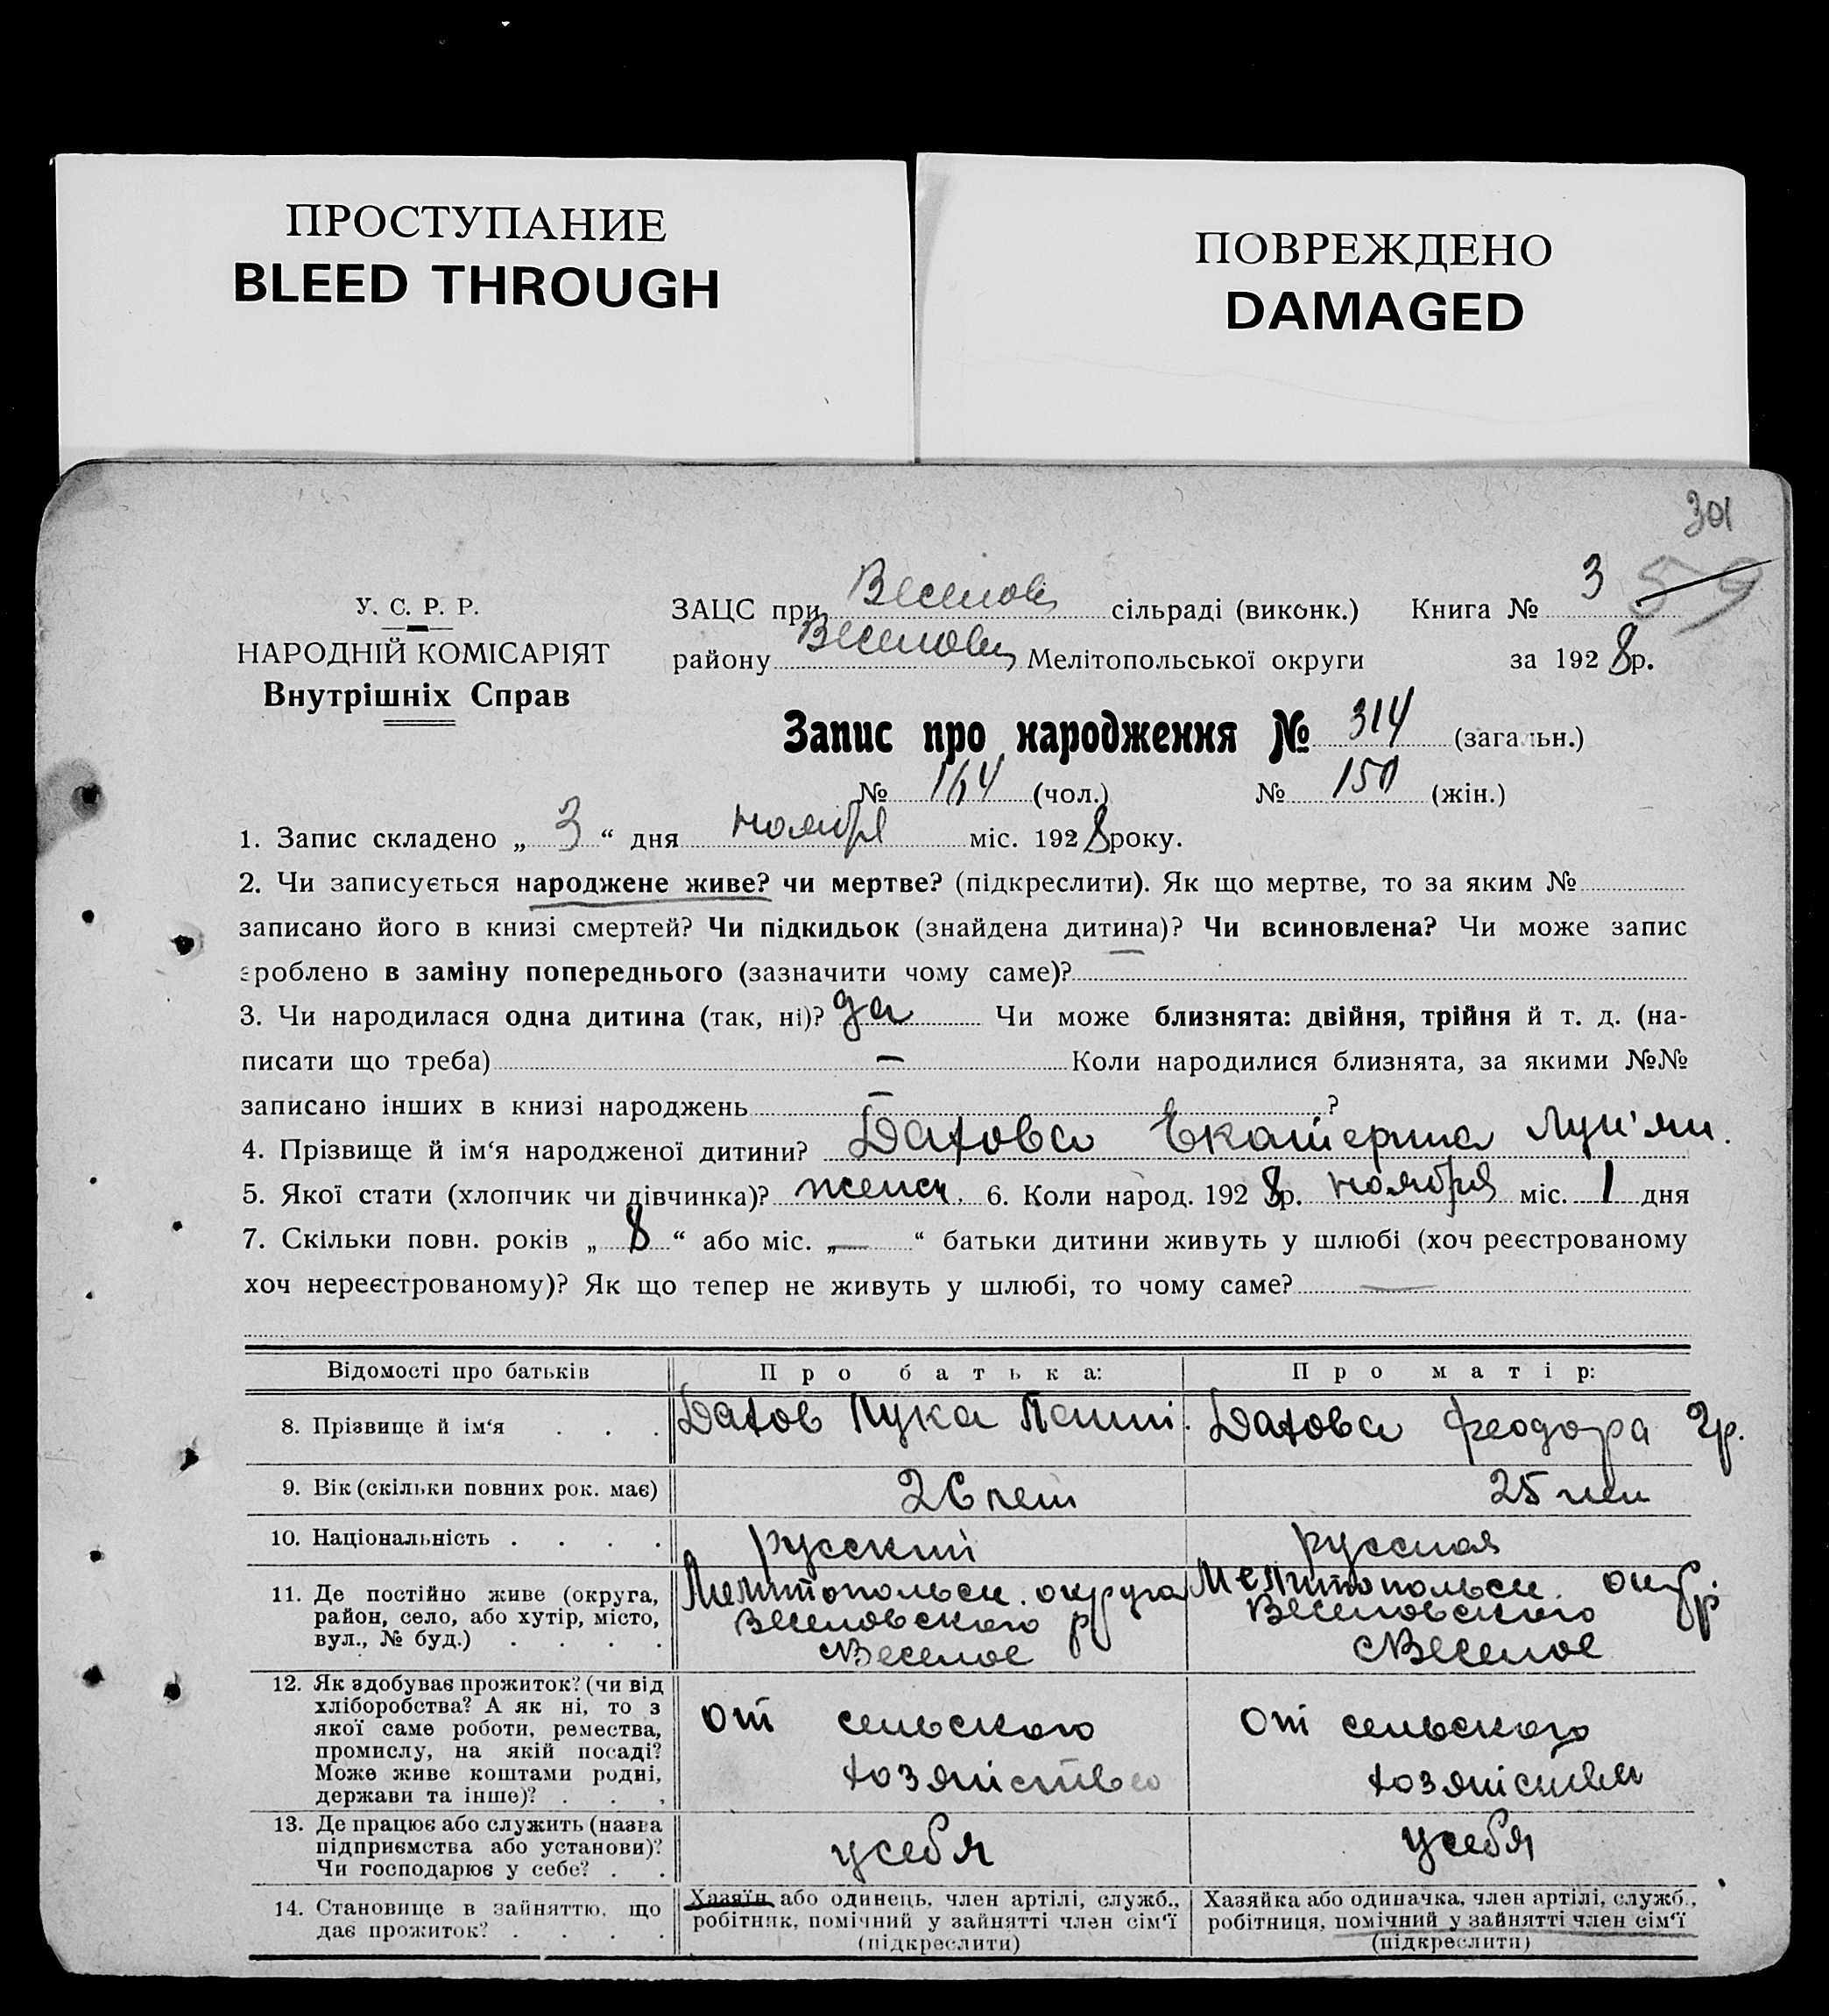 ПРОСТУПАНИЕ
BLEED THROUGH
ПОВРЕЖДЕНО
DAMAGED
301
59
У. С. Р. Р.
НАРОДНІЙ КОМІСАРІЯТ
Внутрішніх Справ
ЗАЦС при Веселов сільраді (виконк.) Книга № 3
району Веселов Мелітопольської округи за 1928р.
Запис про народження № 314 (загальн.)
№ 164 (чол.) № 150 (жін.)
1. Запис складено „ 3 “ дня ноября міс. 1928 року.
2. Чи записується народжене живе? чи мертве? (підкреслити). Як що мертве, то за яким №
записано його в книзі смертей? Чи підкидьок (знайдена дитина)? Чи всиновлена? Чи може запис
зроблено в заміну попереднього (зазначити чому саме)?
3. Чи народилася одна дитина (так, ні)? да Чи може близнята: двійня, трійня й т. д. (на-
писати що треба) — Коли народилися близнята, за якими №№
записано інших в книзі народжень — ?
4. Прізвище й ім‘я народженої дитини? Датова Екатерина Лук'ян.
5. Якої стати (хлопчик чи дівчинка)? женск. 6. Коли народ. 1928р. ноября міс. 1 дня
7. Скільки повн. років „ 8 “ або міс. „ — “ батьки дитини живуть у шлюбі (хоч реєстрованому
хоч нереєстрованому)? Як що тепер не живуть у шлюбі, то чому саме? —
Відомості про батьків Про батька: Про матір:
8. Прізвище й ім‘я . . . Датов Лука Датова Феодора Гр.
9. Вік (скільки повних рок. має) 26 лет 25 лет
10. Національність . . . . русский русская
11. Де постійно живе (округа,
район, село, або хутір, місто,
вул., № буд.) . . . .
Мелитопольск. округа
Веселовского р
с Веселое
Мелитопольск. окр.
Веселовского р
с Веселое
12. Як здобуває прожиток? (чи від
хліборобства? А як ні, то з
якої саме роботи, ремества,
промислу, на якій посаді?
Може живе коштами родні,
держави та інше)? . . .
от сельского
хозяйства
от сельского
хозяйства
13. Де працює або служить (назва
підприємства або установи)?
Чи господарює у себе? . .
у себя
у себя
14. Становище в зайняттю, що
дає прожиток? . . . .
Хазяїн або одинець, член артілі, служб.,
робітник, помічний у зайнятті член сім‘ї
(підкреслити)
Хазяйка або одиначка, член артілі, служб.,
робітниця, помічний у зайнятті член сім‘ї
(підкреслити)